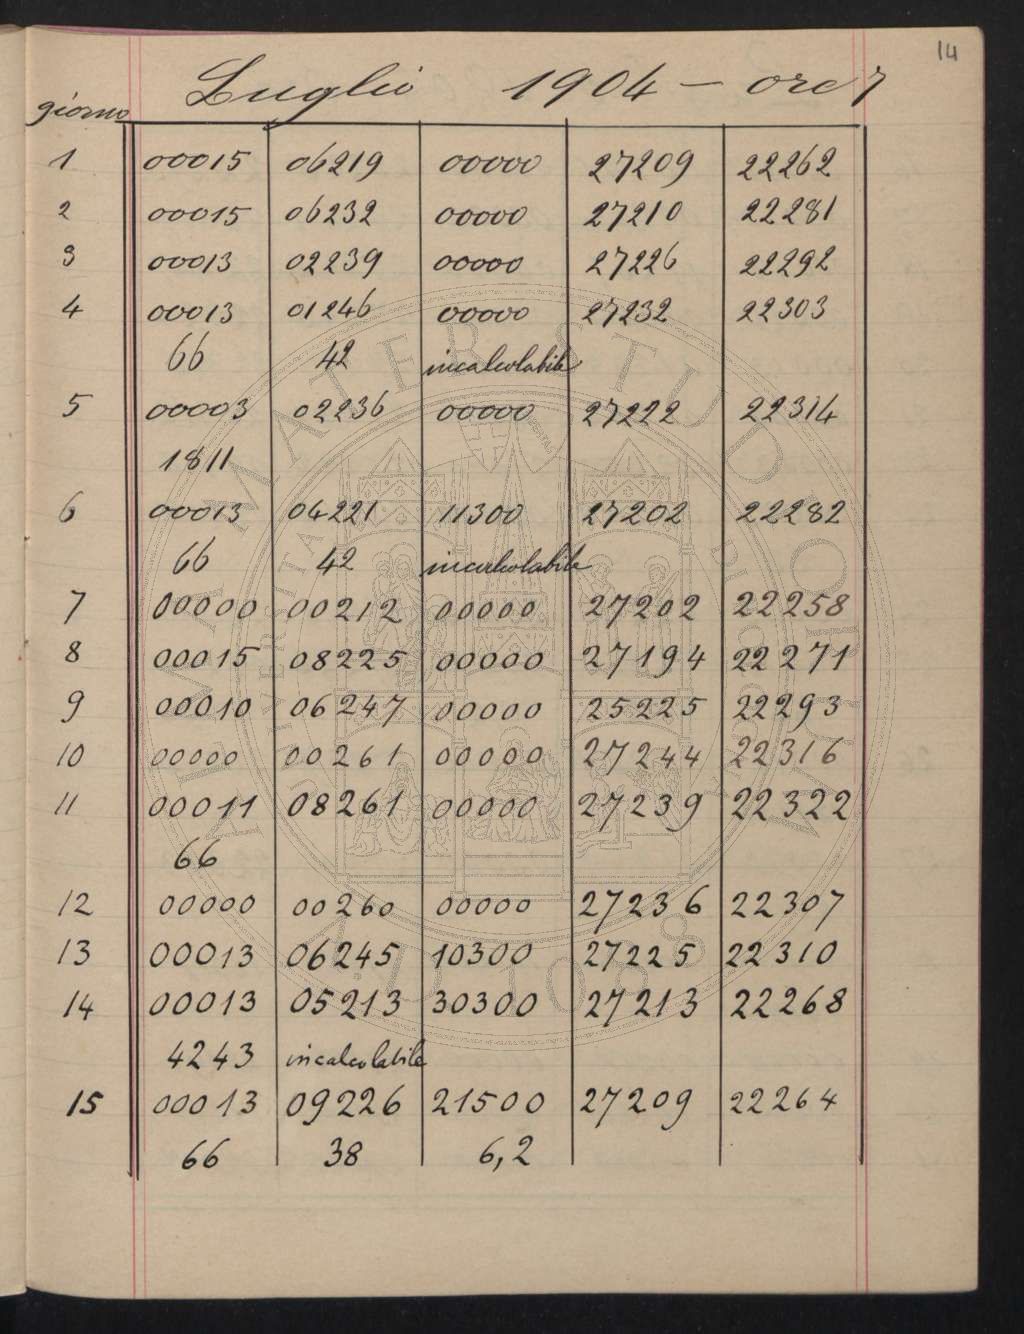 14
Luglio 1904 - ore 7
giorno
1 00015 06219 00000 27209 22262
2 00015 06232 00000 27210 22281
3 00013 02239 00000 27226 22292
4 00013 01246 00000 27232 22303
66 42 incalcolabile
5 00003 02236 00000 27222 22314
1811
6 00013 04221 11300 27202 22282
66 42 incalcolabile
7 00000 00212 00000 27202 22258
8 00015 08225 00000 27194 22271
9 00010 06247 00000 25225 22293
10 00000 00261 00000 27244 22316
11 00011 08261 00000 27239 22322
66
12 00000 00260 00000 27236 22307
13 00013 06245 10300 27225 22310
14 00013 05213 30300 27213 22268
4243 incalcolabile
15 00013 09226 21500 27209 22264
66 38 6,2